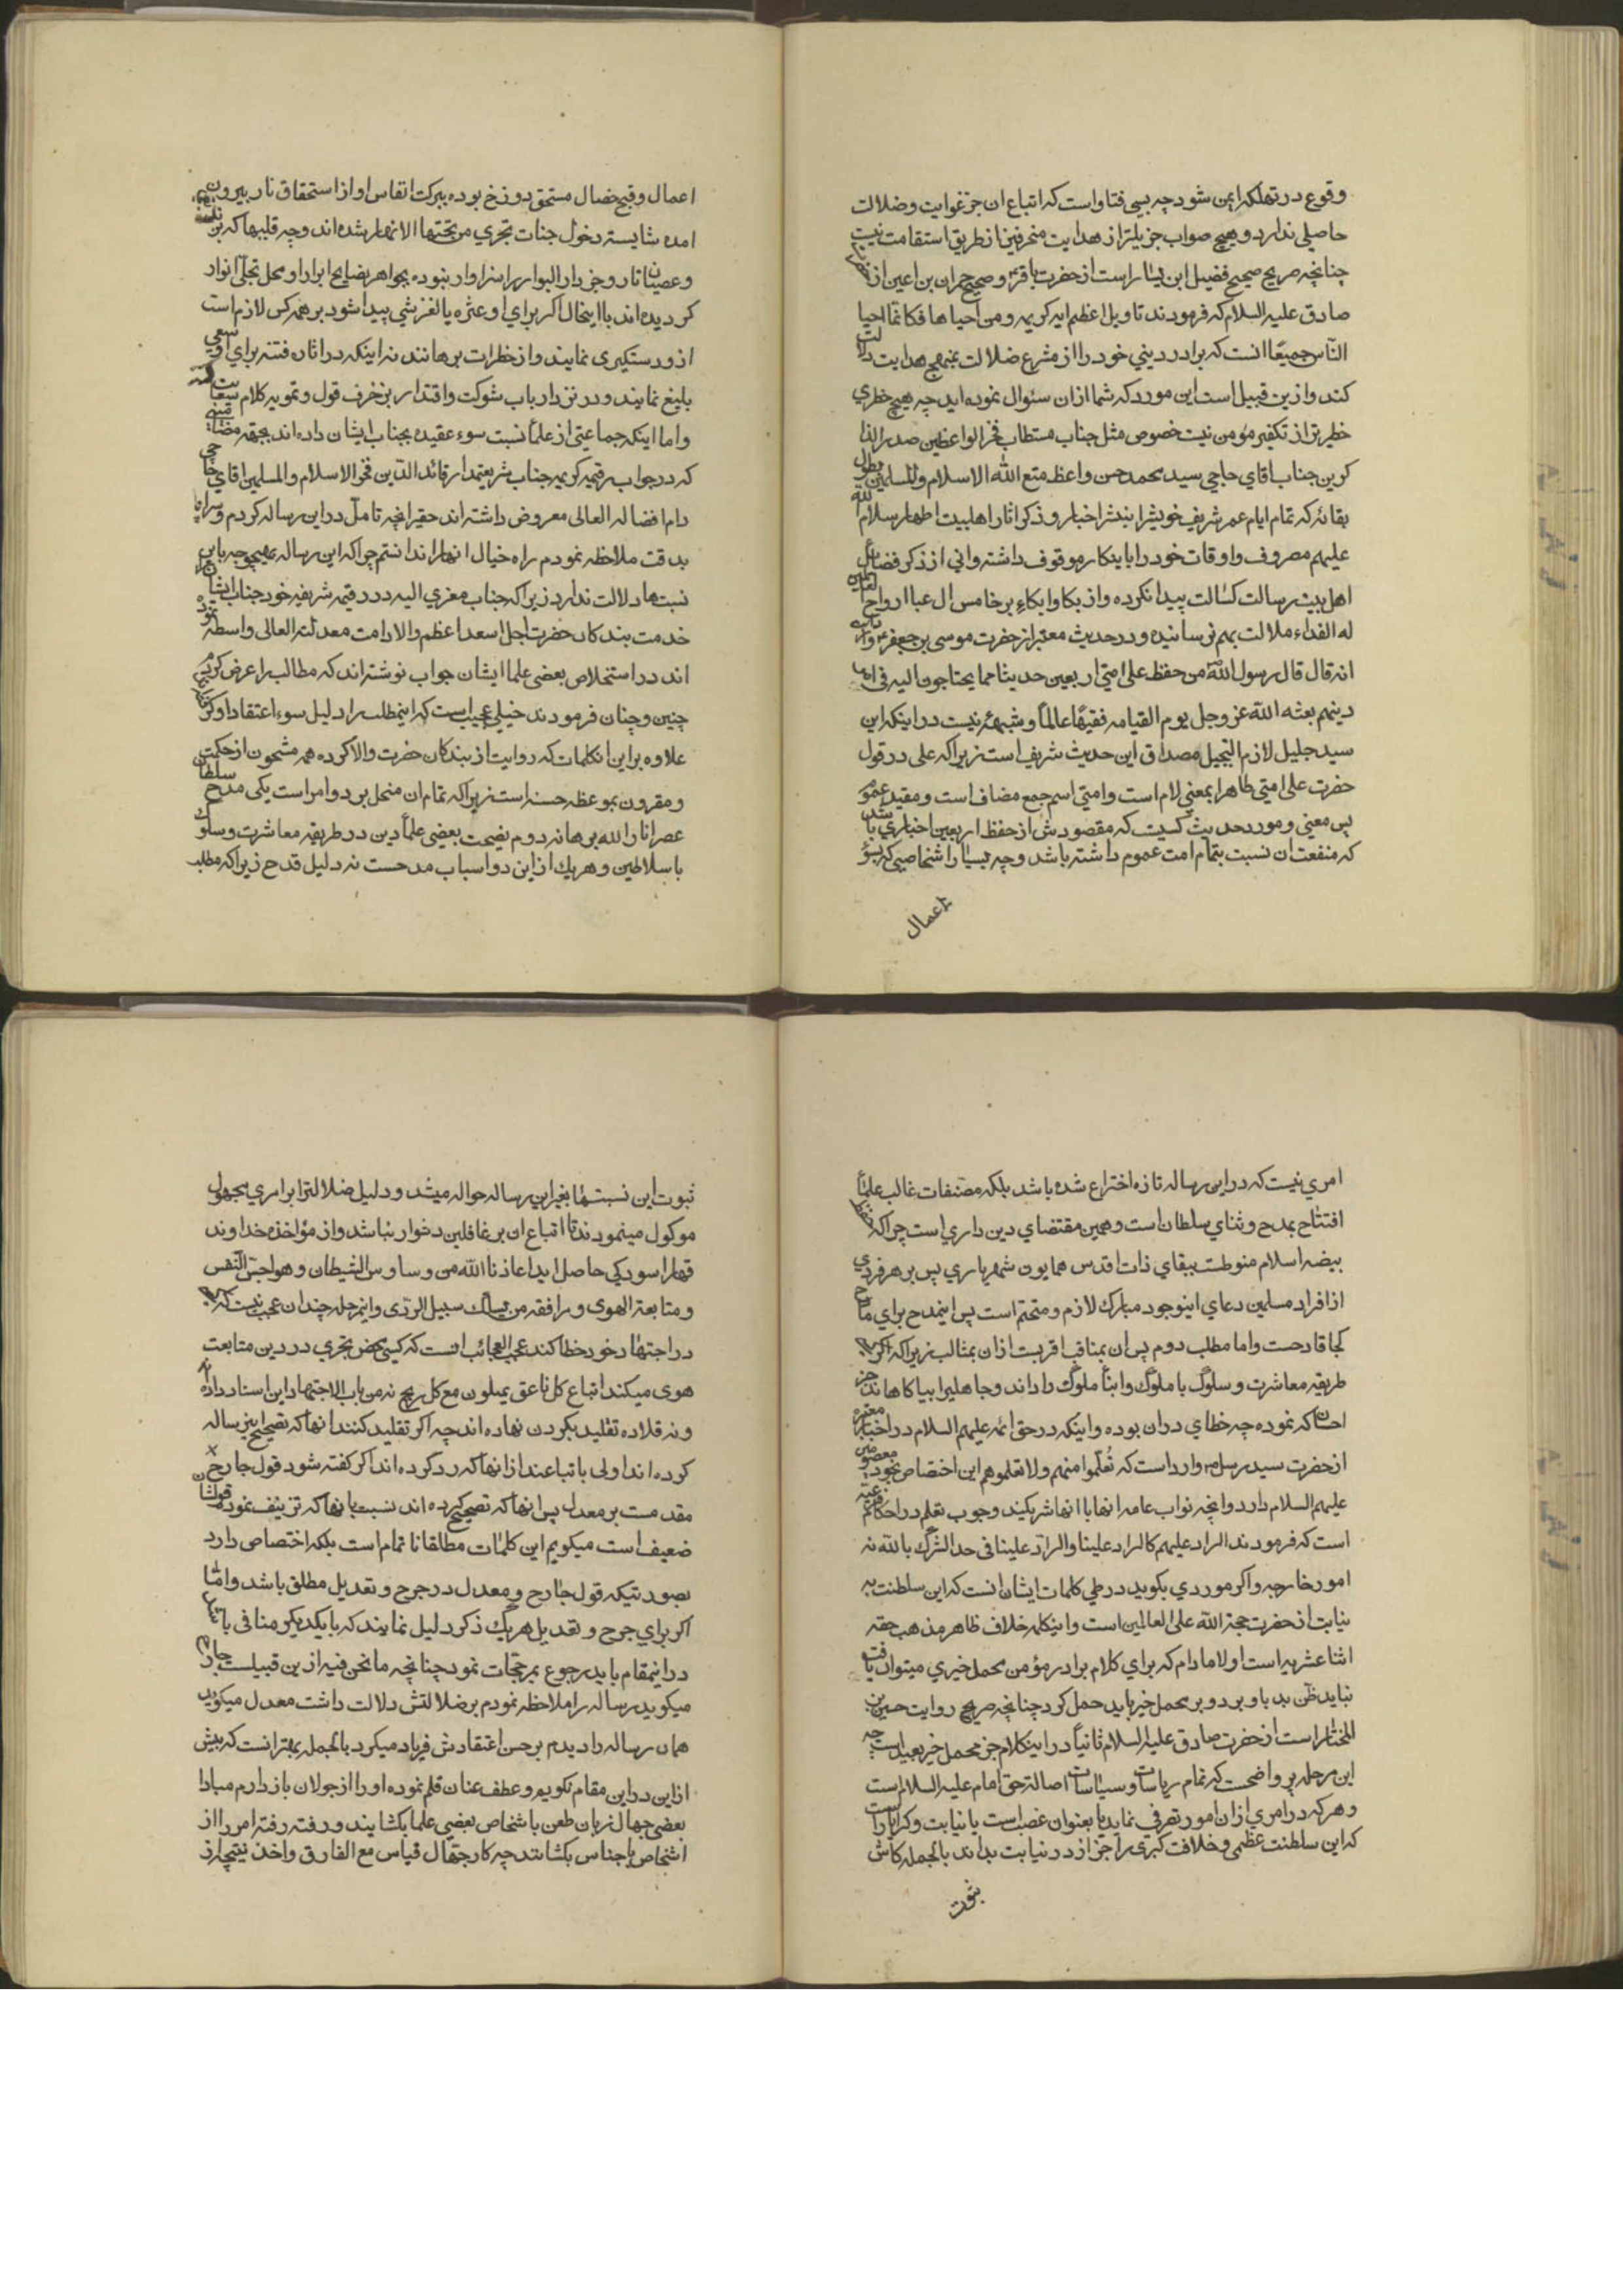 وقوع در تهلکه ایمن شود چه بسی فتاواست که اتباع ان جز غوایت و ضلالت
حاصلی ندارد و هیچ صواب جزیلتر از هدایت منحرفین از طریق استقامت نیست
چنانچه صریح صحیح فضیل ابن یسار است از حضرت باقر و صحیح حمران بن اعین از
صادق علیه السلام که فرمودند تاویل اعظم ایه کریمه و من احیاها فکانما احیا
الناس جمیعا انست که برادر دینی خود را از مشرع ضلالت بمنهج هدایت دلالت
کند و ازین قبیل است این مورد که شما ازان سئوال نموده اید چه هیچ خطری
خطیرتر از تکفیر مؤمن نیست خصوص مثل جناب مستطاب فخر الواعظین صدر الذا
کرین جناب اقای حاجی سید محمد حسن واعظ متع الله الاسلام والمسلمین بطول
بقائه که تمام ایام عمر شریف خویشرا بنشر اخبار و ذکر اثار اهلبیت اطهار سلام الله
علیهم مصروف و اوقات خود را باینکار موقوف داشته و انی از ذکر فضائل
اهل بیت رسالت کسالت پیدا نکرده و از بکا و ابکاء بر خامس ال عبا ارواح العالمین
له الفداء ملالت بهم نرسانیده و در حدیث معتبر از حضرت موسی بن جعفر
انه قال قال رسول الله من حفظ علی امتی اربعین حدیثا مما یحتاجون الیه فی امر
دینهم بعثه الله عز وجل یوم القیامه فقیها عالما و شبهه نیست در اینکه این
سید جلیل لازم التبجیل مصداق این حدیث شریف است زیرا که علی در قول
حضرت علی امتی ظاهرا بمعنی لام است و امتی اسم جمع مضاف است و مفید عموم
پس معنی و مورد حدیث کسیست که مقصودش از حفظ اربعین اخباری باشد
که منفعت ان نسبت بتمام امت عموم داشته باشد و چه بسیار اشخاصی که بسوء
اعمال
اعمال و قبح خصال مستحق دوزخ بوده ببرکت انفاس او از استحقاق نار بیرون
امده شایسته دخول جنات تجری من تحتها الانهار شده اند و چه قلبها که
و عصیان نار و جز دار البوار را سزاوار نبوده بجواهر نصایح ابرار او محل تجلی انوار
کردیده اند با اینحال اکر برای او عثره یا لغزشی پیدا شود بر همه کس لازم است
از و دستکیری نمایند و از خطرات برهانند نه اینکه در اثاره فتنه برای او سعی
بلیغ نمایند و در نزد ارباب شوکت و اقتدار بزخرف قول و تمویه کلام سعایت
و اما اینکه جماعتی از علما نسبت سوء عقیده بجناب ایشان داده اند بجهة
که در جواب رقیمه کریمه جناب شریعتمدار قائد الدین فخر الاسلام والمسلمین اقای حاجی
دام افضاله العالی معروض داشته اند حقیر انچه تامل در این رساله کردم و
بدقت ملاحظه نمودم راه خیال انها را ندانستم چرا که این رساله بهیچوجه باین
نسبتها دلالت ندارد زیرا که جناب معزی الیه در رقیمه شریفه خود جناب ایشان را
خدمت بندکان حضرت اجل اسعد اعظم والا دامت معدلته العالی واسطه نموده
اند در استخلاص بعضی علما ایشان جواب نوشته اند که مطالب را عرض کردیم
چنین و چنان فرمودند خیلی عجیب است که اینمطلب را دلیل سوء اعتقاد او
علاوه بر این انکلمات که روایت از بندکان حضرت والا کرده همه مشحون از حکمت
و مقرون بموعظه حسنه است زیرا که تمام ان منحل بر دو امر است یکی مدح سلطان
عصر انار الله برهانه دوم نصیحت بعضی علما دین در طریقه معاشرت و سلوک
با سلاطین و هر یک از این دو اسباب مدحست نه دلیل قدح زیرا که مطلب
امری نیست که در این رساله تازه اختراع شده باشد بلکه مصنفات غالب علما
افتتاح بمدح و ثنای سلطان است و همین مقتضای دین داری است چرا که حفظ
بیضه اسلام منوطست ببقای ذات اقدس همایون شهریاری پس بر هر فردی
از افراد مسلمین دعای اینوجود مبارک لازم و متحتم است پس اینمدح برای مادح
کجا قادحست و اما مطلب دوم پس ان بمناقب اقربست ازان بمثالب زیرا که اکر
طریقه معاشرت و سلوک با ملوک و ابنأ ملوک را داند و جاهلیرا بیاکاهاند جز
احسان که نموده چه خطای دران بوده و اینکه در حق ائمه علیهم السلام در اخبار معتبره
از حضرت سید رسل وارد است که تعلموا منهم ولا تعلموهم این اختصاص بخود معصومین
علیهم السلام دارد و انچه نواب عامه انها با انها شریکند وجوب تعلم در احکام شرعیه
است که فرمودند الراد علیهم کالراد علینا والراد علینا فی حد الشرک بالله نه
امور خارجه و اکر موردی بکوید در طی کلمات ایشان انست که این سلطنت به
نیابت از حضرت حجة الله علی العالمین است و اینکلمه خلاف ظاهر مذهب حقه
اثنا عشریه است اولا مادام که برای کلام برادر مؤمن محمل خیری میتوان یافت
نباید ظن بد باو برد و بر محمل خیر باید حمل کرد چنانچه صریح روایت حسین بن
المختار است از حضرت صادق علیه السلام ثانیا در اینکلام جز محمل خیر بعید است چه
این مرحله پر واضحست که تمام ریاسات و سیاسات اصالة حق امام علیه السلام است
و هر که در امری ازان امور تصرفی نماید یا بعنوان غصب است یا نیابت
که این سلطنت عظمی و خلافت کبری را جز از در نیابت بداند بالجمله کاش
ثبوت
ثبوت این نسبتها بغیر این رساله حواله میشد و دلیل ضلالترا بر امری مجهول
موکول مینمودند تا اتباع ان بر غافلین دخوار نباشد و از مؤاخذه خداوند
قهار اسودکی حاصل اید اعاذنا الله من وساوس الشیطان و هواجس النفس
و متابعة الهوی و مرافقه من یسلک سبیل الردی و اینمرحله چندان عجب نیست که
در اجتهاد خود خطا کند عجب العجائب انست که کسی محض تجری در دین متابعت
هوی میکند اتباع کل ناعق یمیلون مع کل ریح نه من باب الاجتهاد این اسناد داده
و نه قلاده تقلید بکردن نهاده اند چه اکر تقلید کنند انها که تصحیح این رساله
کرده اند اولی باتباعند از انها که رد کرده اند اکر کفته شود قول جارح
مقدمست بر معدل پس انها که تصحیح کرده اند نسبت بانها که تزییف نموده قولشان
ضعیف است میکویم این کلمات مطلقا نا تمام است بلکه اختصاص دارد
بصورتیکه قول جارح و معدل در جرح و تعدیل مطلق باشد و اما
اکر برای جرح و تعدیل هر یک ذکر دلیل نمایند که با یکدیکر منافی باشد
در اینمقام باید رجوع بمرجحات نمود چنانچه ما نحن فیه از ین قبیلست جارح
میکوید رساله را ملاحظه نمودم بر ضلالتش دلالت داشت معدل میکوید
همان رساله را دیدم بر حسن اعتقادش فریاد میکرد بالجمله بهتر انست که بیش
از این در این مقام نکویم و عطف عنان قلم نموده او را از جولان باز دارم مبادا
بعضی جهال زبان طعن باشخاص بعضی علما بکشایند و رفته رفته امر را از
اشخاص باجناس بکشانند چه کار جهال قیاس مع الفارق و اخذ نتیجه از